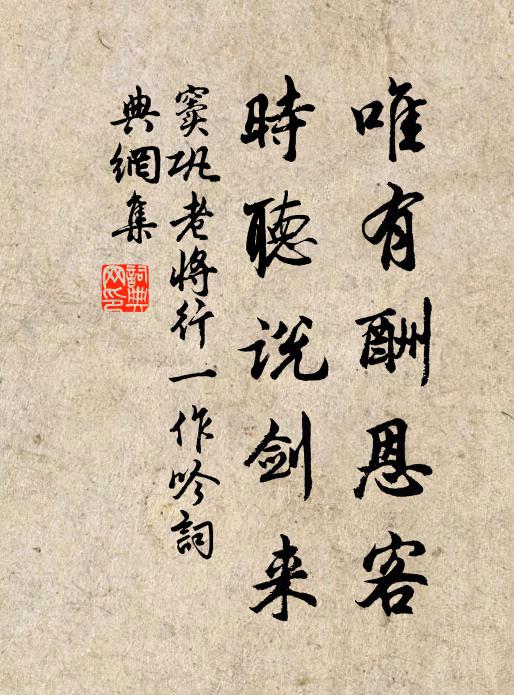 唯有酬恩客
时聽说剑来
窦巩老将行一作吟詞
典網集
詞典
网印